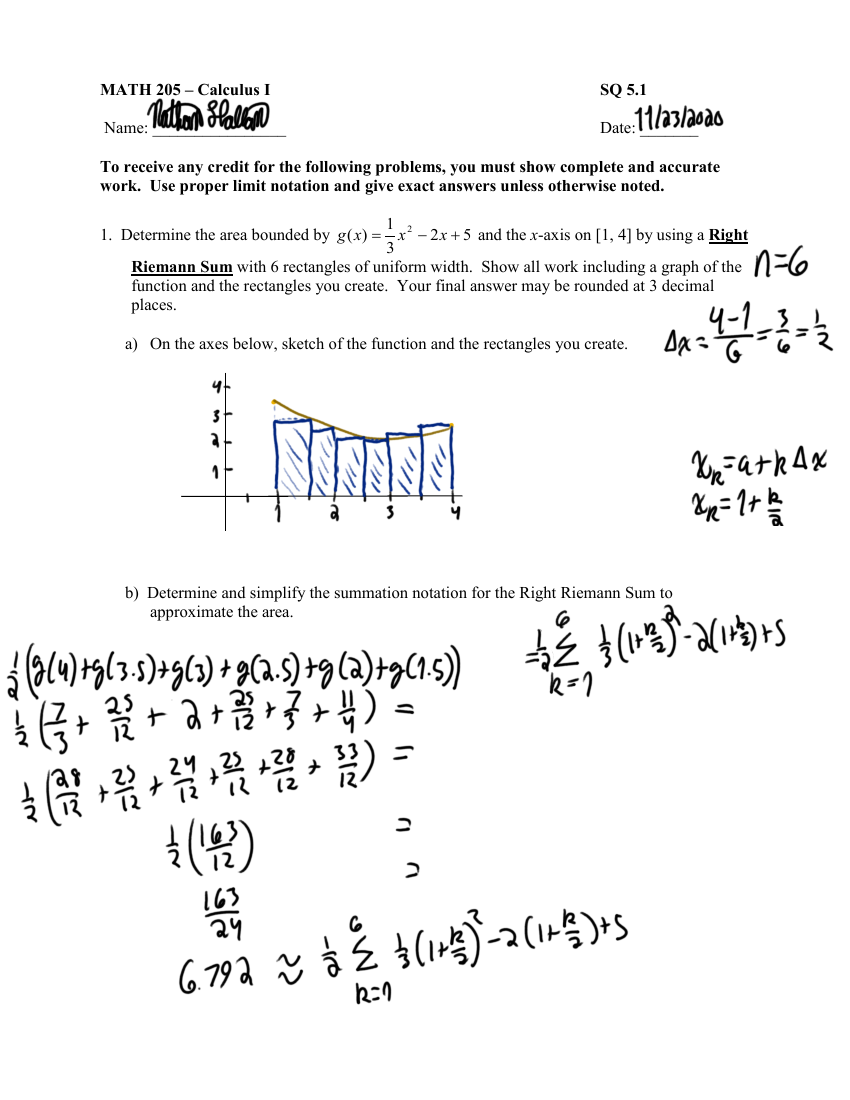 MATH 205 – Calculus I SQ 5.1
Name: Date: 11/23/2020
To receive any credit for the following problems, you must show complete and accurate
work. Use proper limit notation and give exact answers unless otherwise noted.
1. Determine the area bounded by g(x) = 1/3 x² − 2x + 5 and the x-axis on [1, 4] by using a Right
Riemann Sum with 6 rectangles of uniform width. Show all work including a graph of the
function and the rectangles you create. Your final answer may be rounded at 3 decimal
places.
n=6
a) On the axes below, sketch of the function and the rectangles you create.
Δx = (4-1)/6 = 3/6 = 1/2
4
3
2
1
1 2 3 4
x_k = a + k Δx
x_k = 1 + k/2
b) Determine and simplify the summation notation for the Right Riemann Sum to
approximate the area.
= 1/2 Σ_{k=1}^{6} 1/3 (1+k/2)² - 2(1+k/2) + 5
1/2 (g(4)+g(3.5)+g(3)+g(2.5)+g(2)+g(1.5))
1/2 (7/3 + 25/12 + 2 + 25/12 + 7/3 + 11/4) =
1/2 (28/12 + 25/12 + 24/12 + 25/12 + 28/12 + 33/12) =
1/2 (163/12) =
=
163/24
6.792 ≈ 1/2 Σ_{k=1}^{6} 1/3 (1+k/2)² - 2(1+k/2) + 5